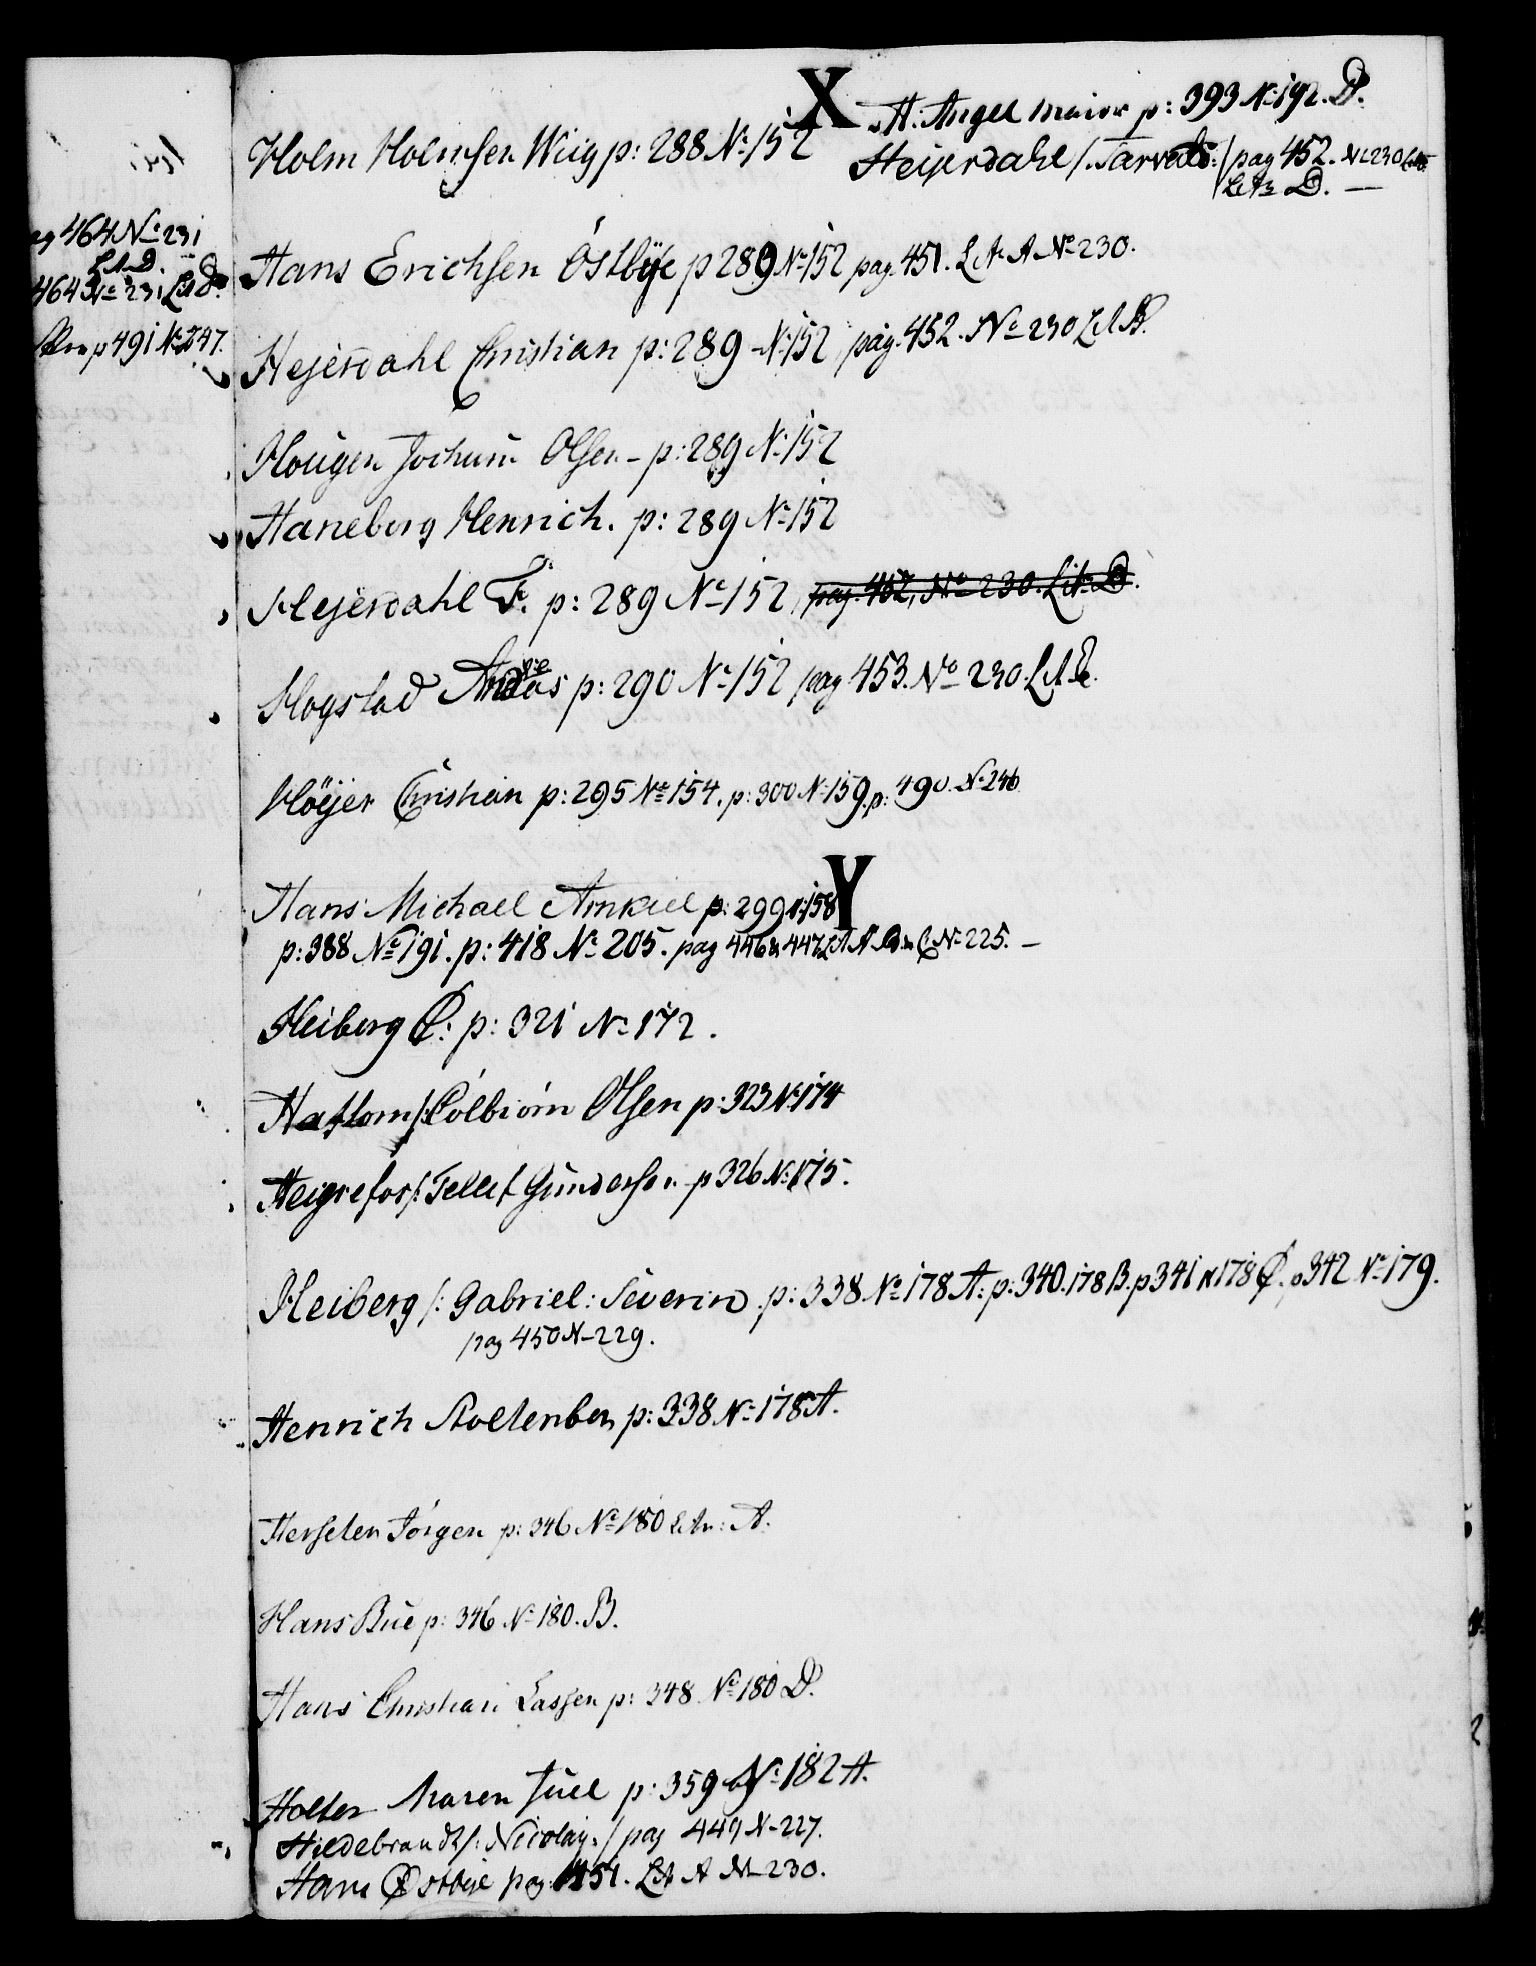 X
H: Angel maior p: 393 No 192. D.
Holm Holmsen Wiig p: 288 No 152
Heijerdahl /: Tarvald :/ pag 452. No 230
Litr D. —
ag 464 No 231
Lit D.
464 No 231 Lit D.
p 491 No 247.
Hans Erichsen Östbÿe p 289 No 152 pag. 451. Lit A No 230.
Hejerdahl Christian p: 289 No 152 pag. 452. No 230 Lit B.
Hougen Jochum Olsen - p: 289 No 152
Haneberg Henrich. p: 289 No 152
Hejerdahl F. p: 289 No 152 pag. 452, No 230. Litr D.
Hogstad Andreas p: 290 No 152 pag 453. No 230. Lit E.
Höÿer Christian p: 295 No 154. p: 300 No 159. p: 490. No 246
Y
Hans Michael Arnkiel p: 299 No 158
p: 388 No 191. p: 418 No 205. pag 446 & 447 Lit A B & C No 225. —
Heiberg C: p: 321 No 172.
Hattom /: Colbiörn Olsen p: 323 No 174
Heigrefos /: Tellef Gundersen p 326 No 175.
Heiberg /: Gabriel: Severin. p: 338 No 178 A: p: 340. 178 B. p 341 N 178 C. p 342 No 179.
pag 450 No 229.
Henrich Stoltenberg p: 338 No 178 A.
Hersleten Jörgen p: 346 No 180 Litr: A.
Hans Bue p: 346 No 180. B.
Hans Christian Lassen p: 348 No 180 D.
Holter Maren Juel p: 359 No 182 A.
Hildebrandt /: Nicolay. / pag 449 No 227.
Hans Östbye pag. 451. Lit A No 230.